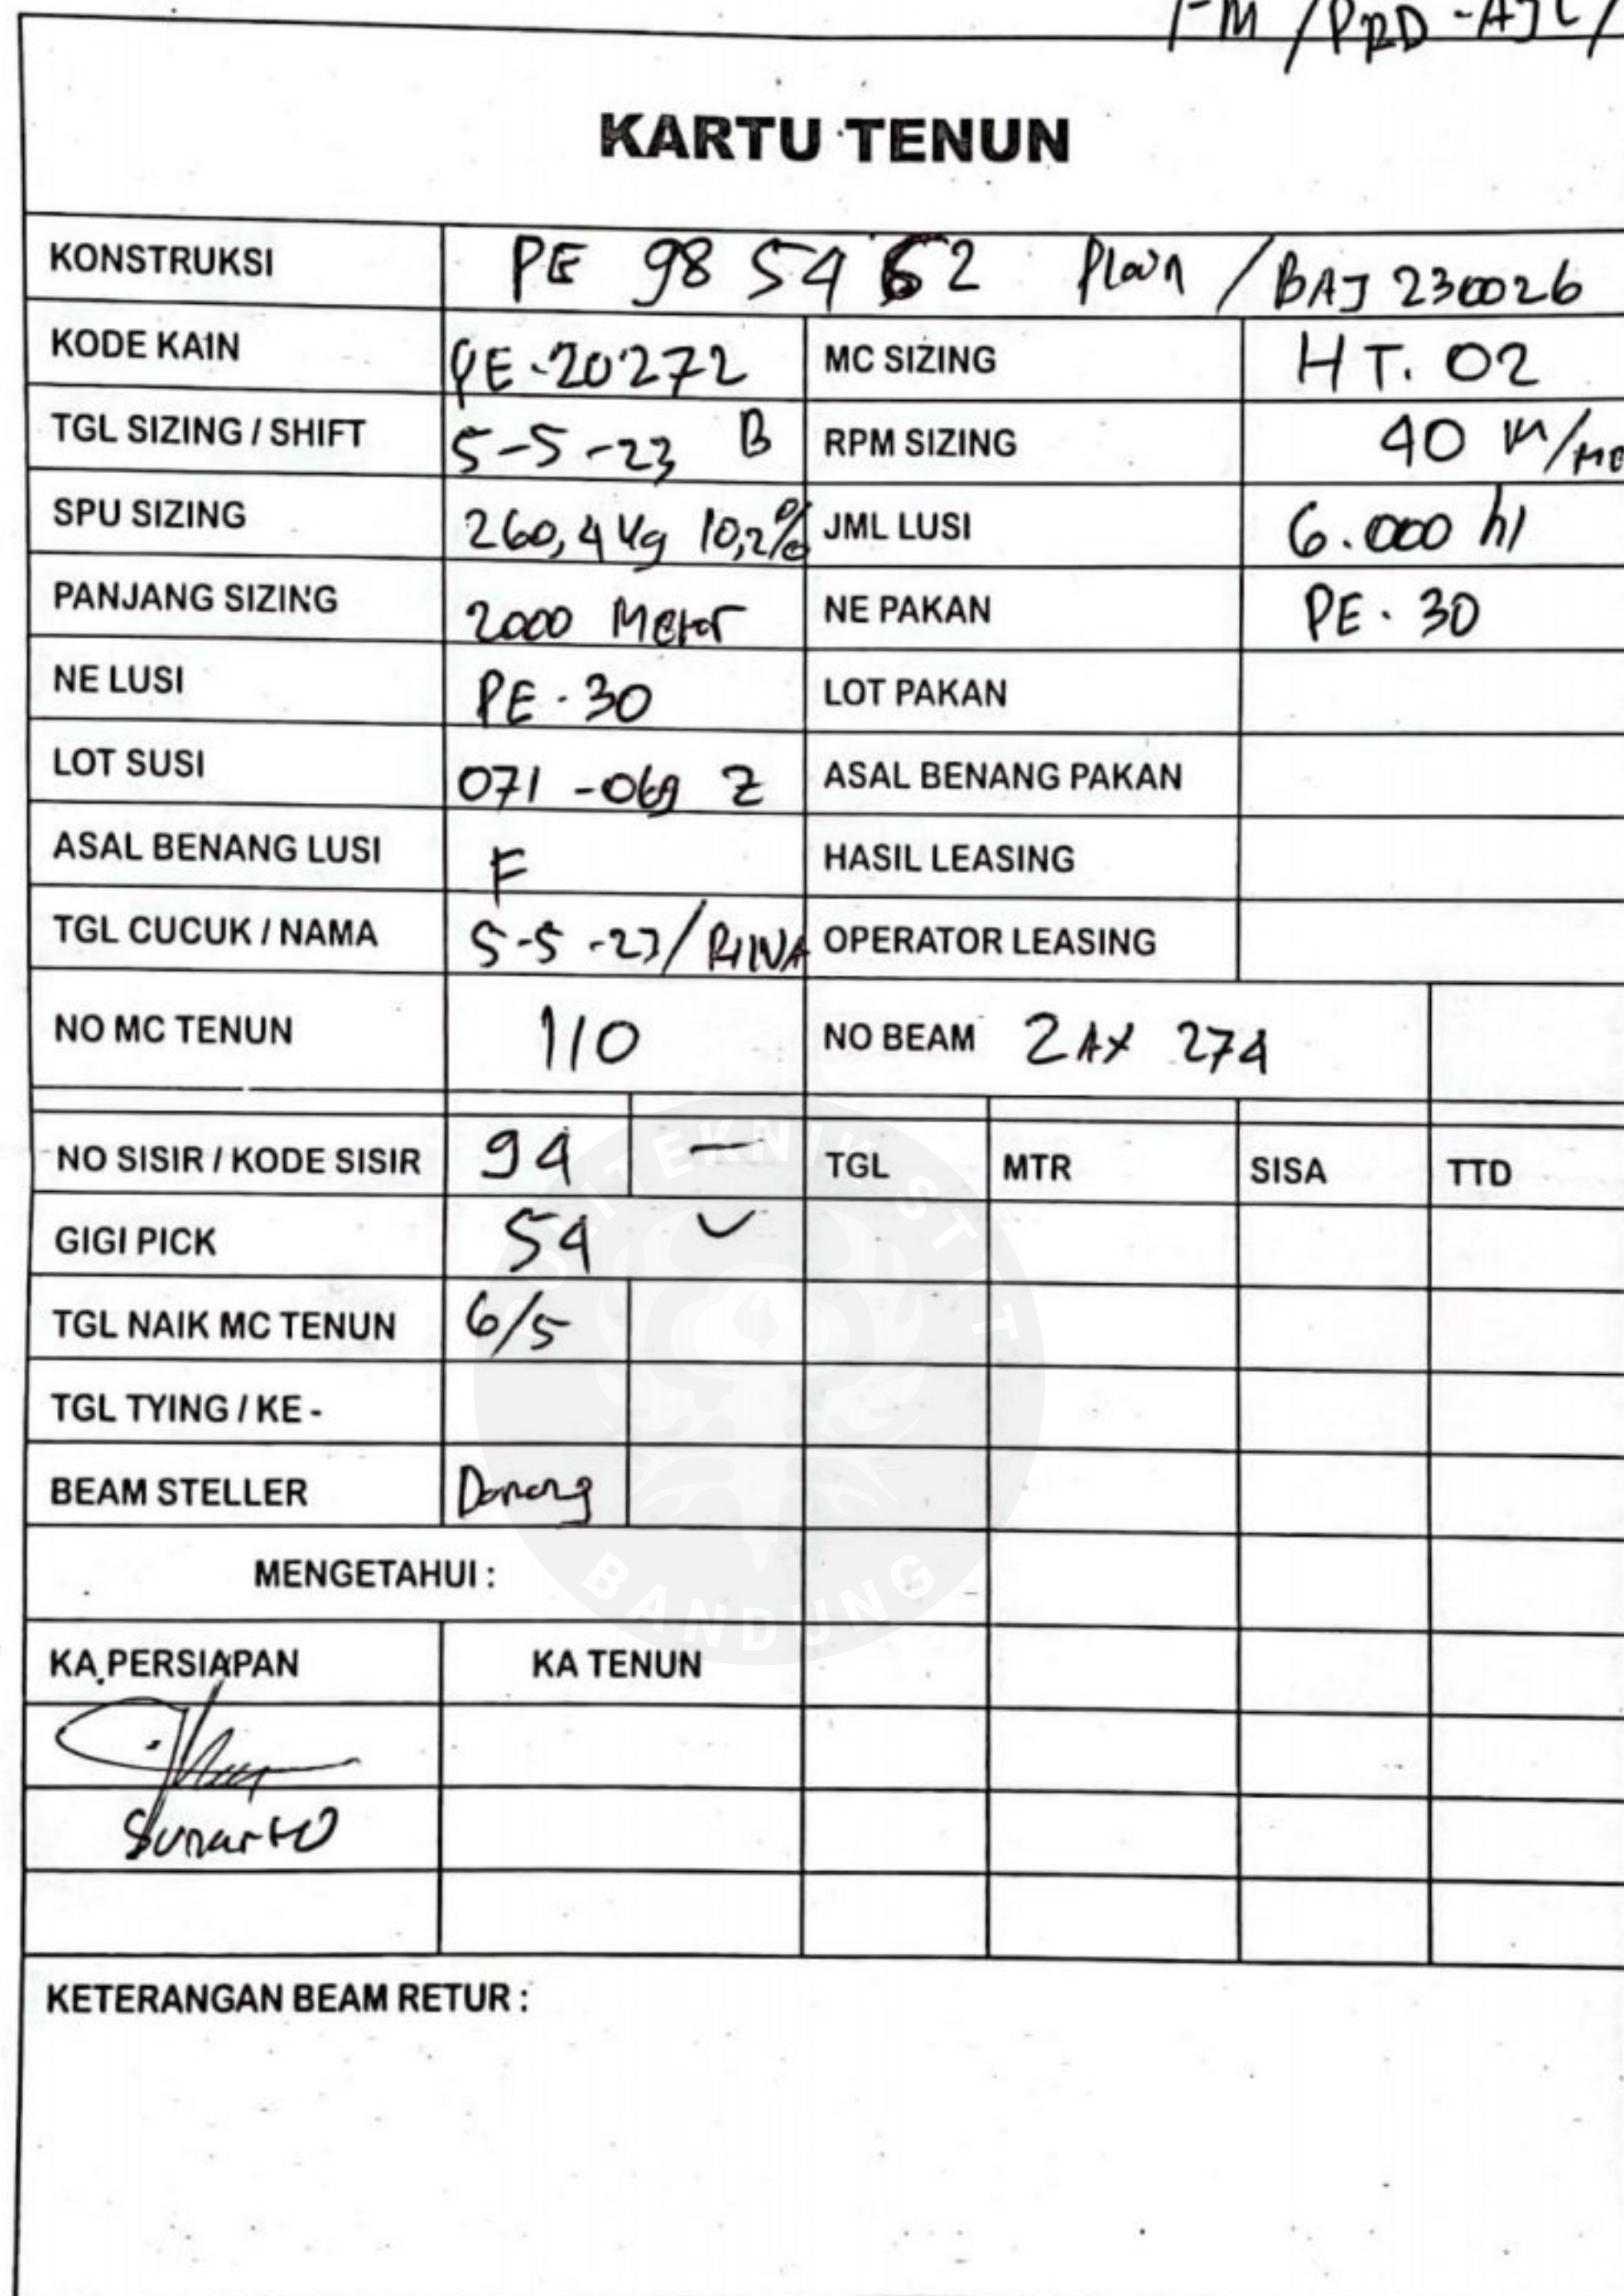 FM / PRD - AJL /
KARTU TENUN
KONSTRUKSI PE 98 54 62 Plain / BAJ 230026
KODE KAIN PE-20272 MC SIZING HT. 02
TGL SIZING / SHIFT 5-5-23 B RPM SIZING 40 m/
SPU SIZING 260,4 Kg 10,2% JML LUSI 6.000 hl
PANJANG SIZING 2000 Meter NE PAKAN PE. 30
NE LUSI PE. 30 LOT PAKAN
LOT SUSI 071 - 069 Z ASAL BENANG PAKAN
ASAL BENANG LUSI F HASIL LEASING
TGL CUCUK / NAMA 5-5-23 / RINA OPERATOR LEASING
NO MC TENUN 110 NO BEAM ZAX 274
NO SISIR / KODE SISIR 94 — TGL MTR SISA TTD
GIGI PICK 54
TGL NAIK MC TENUN 6/5
TGL TYING / KE -
BEAM STELLER Danang
MENGETAHUI :
KA PERSIAPAN KA TENUN
Sunarto
KETERANGAN BEAM RETUR :
POLITEKNIK STTT
BANDUNG